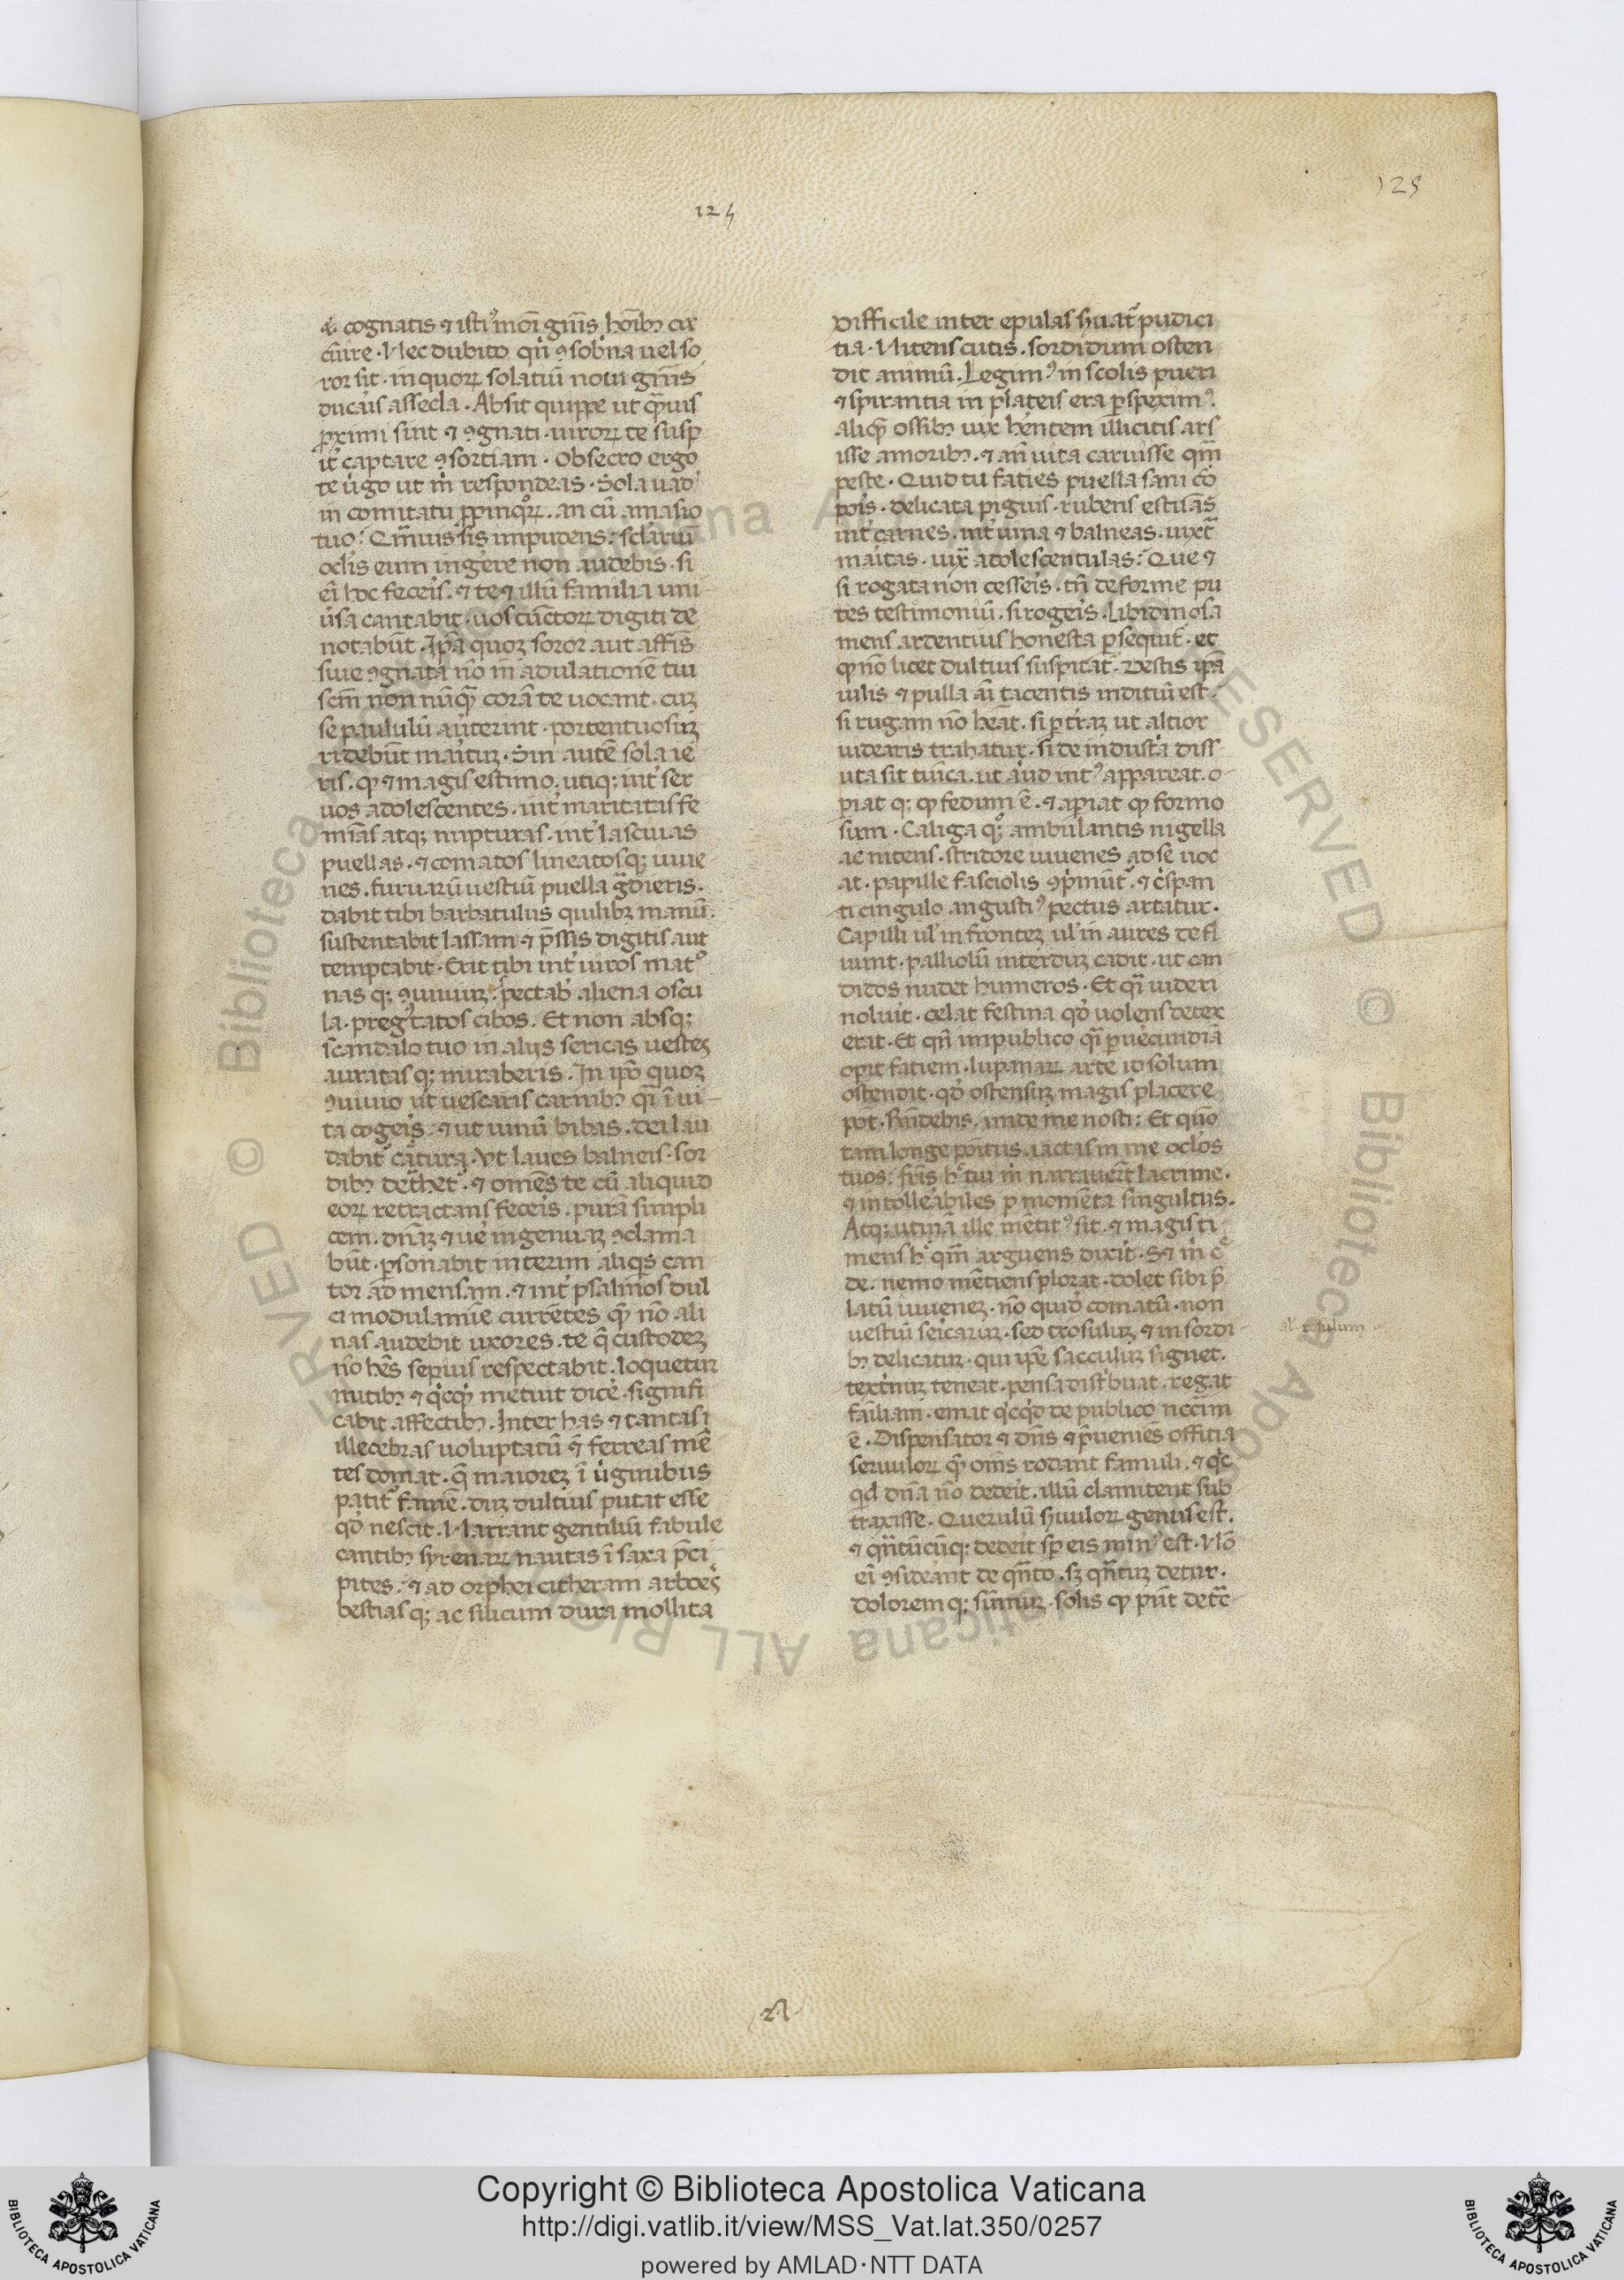 125
124
de cognatis ⁊ istiꝰmōi gn̄is hoīb; cix
cūire · Nec dubito qn̄ ꝯsobͥna uel so
ror sit · in quoꝝ solatiū noui gn̄is
ducaͥs assecla · Absit quippe ut qͣuis
ꝓximi sint ⁊ ꝯgnati · uiroꝝ te susp
ir̄ captare ꝯsortiam · Obsecro ergo
te uͥgo ut m̄ respondeas · Sola uad
in comitatu ꝓpinqͦꝝ · an cū amasio
tuo? Qͣmuis sis impudens: sclariū
oclis eum ingere non audebis · si
eī hoc feceͥs · ⁊ te ⁊ illū familia uni
uͥsa cantabit · uos cūctoꝝ digiti de
notabūt · Ip̄a quoꝫ soror aut affīs
siue ꝯgnata
scm̄ non nūqͣ corā te uocant · cuꝫ
se paululū auͥterint · portentuosuꝫ
ridebūt maͥtuꝫ · Sin autē sola ie
ris · qͦ ⁊ magis estimo · utiqꝫ int̄ ser
uos adolescentes · int̄ maritatas fe
mīas atqꝫ nupturas · int̄ lasciuas
puellas · ⁊ comatos lineatosqꝫ iuue
nes · furuarū uestiū puella gͣdieris ·
dabit tibi barbatulus quilibꝫ manū ·
sustentabit lassam ⁊ p̄ssis digitis aut
temptabit · Erit tibi int̄ uiros matͦ
nas qꝫ ꝯuiuiuꝫ · pectab̄ aliena oscu
la · pregͥtatos cibos · Et non absqꝫ
scandalo tuo in alijs sericas uestes
auratas qꝫ miraberis · In ip̄o quoꝫ
ꝯuiuio ut uescaris carnibꝫ qͣi īui
ta cogeͥs · ⁊ ut uinū bibas · dei lau
dabit̄ cͣtura · Vt laues balneis · sor
dibꝫ det̄het̄ · ⁊ omēs te cū aliquid
eoꝝ retractans feceͥs · purā simpli
cem · dn̄aꝫ ⁊ ue ingenuaꝫ ꝯclama
būt · ꝑsonabit interim aliqͥs can
tor ad mensam · ⁊ int̄ psalmos dul
ci modulamīe currētes qm̄ nō ali
nas audebit uxores · te qͣ custodeꝫ
nō hēs sepius respectabit · loquetur
nutibꝫ ⁊ qͥcqͥd metuit dice · signifi
cabit affectibꝫ · Inter has ⁊ tantas i
illecebras uoluptatū ⁊ ferreas mē
tes domat · qͣ maiorez ī uͥginibus
patit̄ famē · duꝫ dultius putat esse
qd̄ nescit · Narrant gentiliū fabule
cantibꝫ syrenaꝝ nautas ī saxa p̄ci
pites · ⁊ ad orphei citheram arboes
bestias qꝫ ac silicum dura mollita
Difficile inter epulas ẜuat̄ pudici
tia · Nitens cutis · sordidum osten
dit animū · Legimꝰ in scolis pueri
⁊ spirantia in plateis era ꝑspeximꝰ ·
aliqͣ ossibꝫ uix hērentem illicitis ars
isse amoribꝫ · ⁊ an̄ uita caruisse qͣm
peste · Quid tu faties puella sani cō
pois · delicata piguis · rubens estuās
int̄ carnes · int̄ uina ⁊ balneas · iuxt̄
maͥtas · iux̄ adolescentulas? Que ⁊
si rogata non cesseͥs · tn̄ deforme pu
tes testimoniū · si rogeͥs · Libidinosa
mens ardentius honesta ꝑsequit̄ · et
qͦ nō licet dultius suspicat̄ · Vestis ip̄a
uilis ⁊ pulla aī tacentis inditiū est ·
si rugam nō heāt · si ꝑ t̄raꝫ ut altior
uidearis trahatur · si de industͥa diss
uta sit tunica · ut aͥud intꝰ appareat · o
piat qꝫ qͦ fedum ē · ⁊ aꝑiat qͦ formo
sum · Caliga qͦꝫ ambulantis nigella
ac nitens · stridore iuuenes ad se uoc
at · papille fasciolis ꝯpͥmūt̄ · ⁊ cͥspan
ti cingulo angustiꝰ pectus artatur ·
Capilli ul̄ in frontez ul̄ in aures defl
uunt · palliolū interduꝫ cadit · ut can
didos nudet humeros · Et qͣi uideri
noluit · celat festina qd̄ uolens detex
erat · Et qn̄ inpublico qͣi ꝑ uecundiā
opit fatiem · lupanaꝝ arte id solum
ostendit · qd̄ ostensuꝫ magis placere
pōt · Rn̄debis · unde me nosti: Et quō
tam longe poitus · iactas in me oclōs
tuos: fr̄is hͦ tui m̄ narrauer̄t lacrime ·
⁊ intolleabiles ꝑ momēta singultus ·
Atqꝫ utinā ille mētitꝰ sit · ⁊ magis ti
mens hͦ qͣm arguens dixit · Sꝫ m̄ c̄
de · nemo mētiens plorat · dolet sibi p̄
latū iuuenez · nō quid̄ comatū · non
uestiū seicaruꝫ · sed trosuluꝫ ⁊ in sordi
bꝫ delicatuꝫ · qui ip̄e sacculuꝫ signet ·
textͥnuꝫ teneat · pensa distͥbuat · regat
fāiliam · emat qͥcqͥd de publico nccm̄
ē · Dispensator ⁊ dn̄s ⁊ p̄ueniēs offitia
seruuloꝝ qͣ om̄s rodant famuli · ⁊ qͥc
qͥd dn̄a nō dedeͥt · illū clamitent sub
traxisse · Querulū ẜuuloꝝ genus est ·
⁊ qn̄tūcūqꝫ dedeͥt sp̄ eis minꝰ est · Nō
eī ꝯsideant de qn̄to · sꝫ qn̄tuꝫ detur ·
dolorem qꝫ sūmuꝫ · solis qͦ pn̄t det̄c
al · rosulum
Copyright © Biblioteca Apostolica Vaticana
http://digi.vatlib.it/view/MSS_Vat.lat.350/0257
powered by AMLAD·NTT DATA